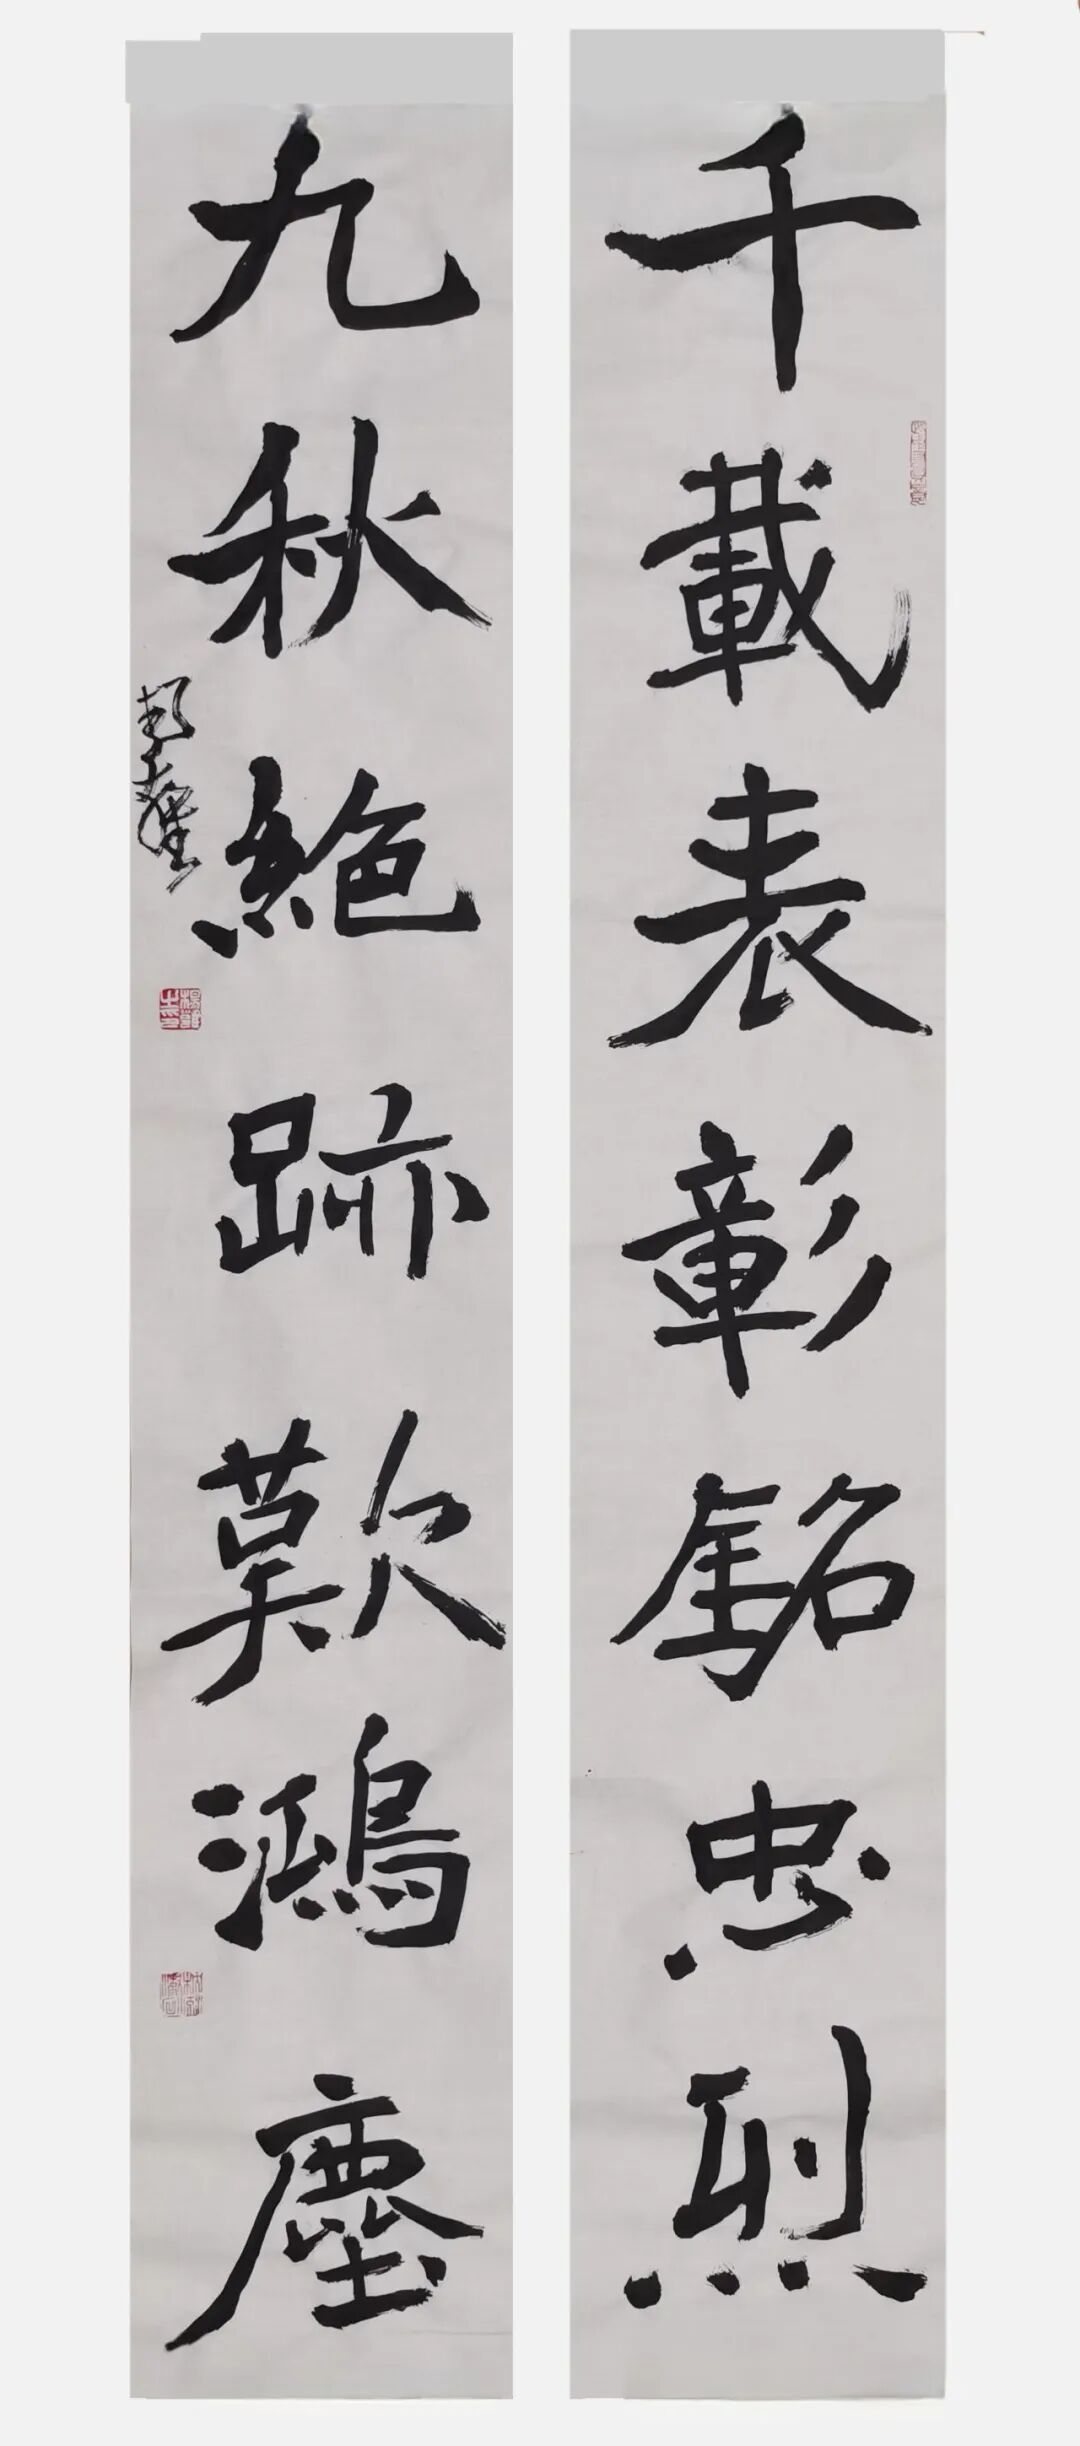 千載表彰銘忠烈
九秋絶跡歎鴻塵